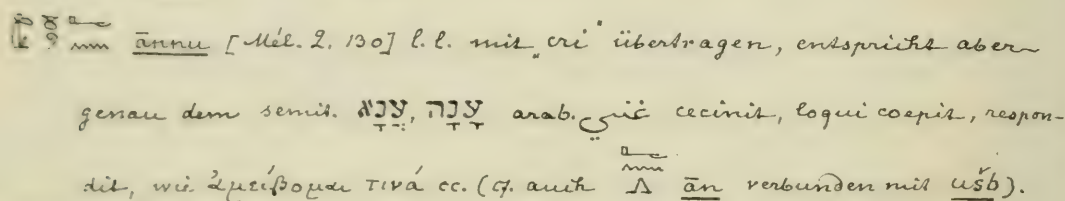 ānnu [Mél. 2. 130] l. l. mit „cri“ übertragen, entspricht aber
genau dem semit. עֲנָא, עָנָה arab. غنى cecinit, loqui coepit, respon-
dit, wie ἀμείβομαι τινά cc. (cf. auch ān verbunden mit ušb).